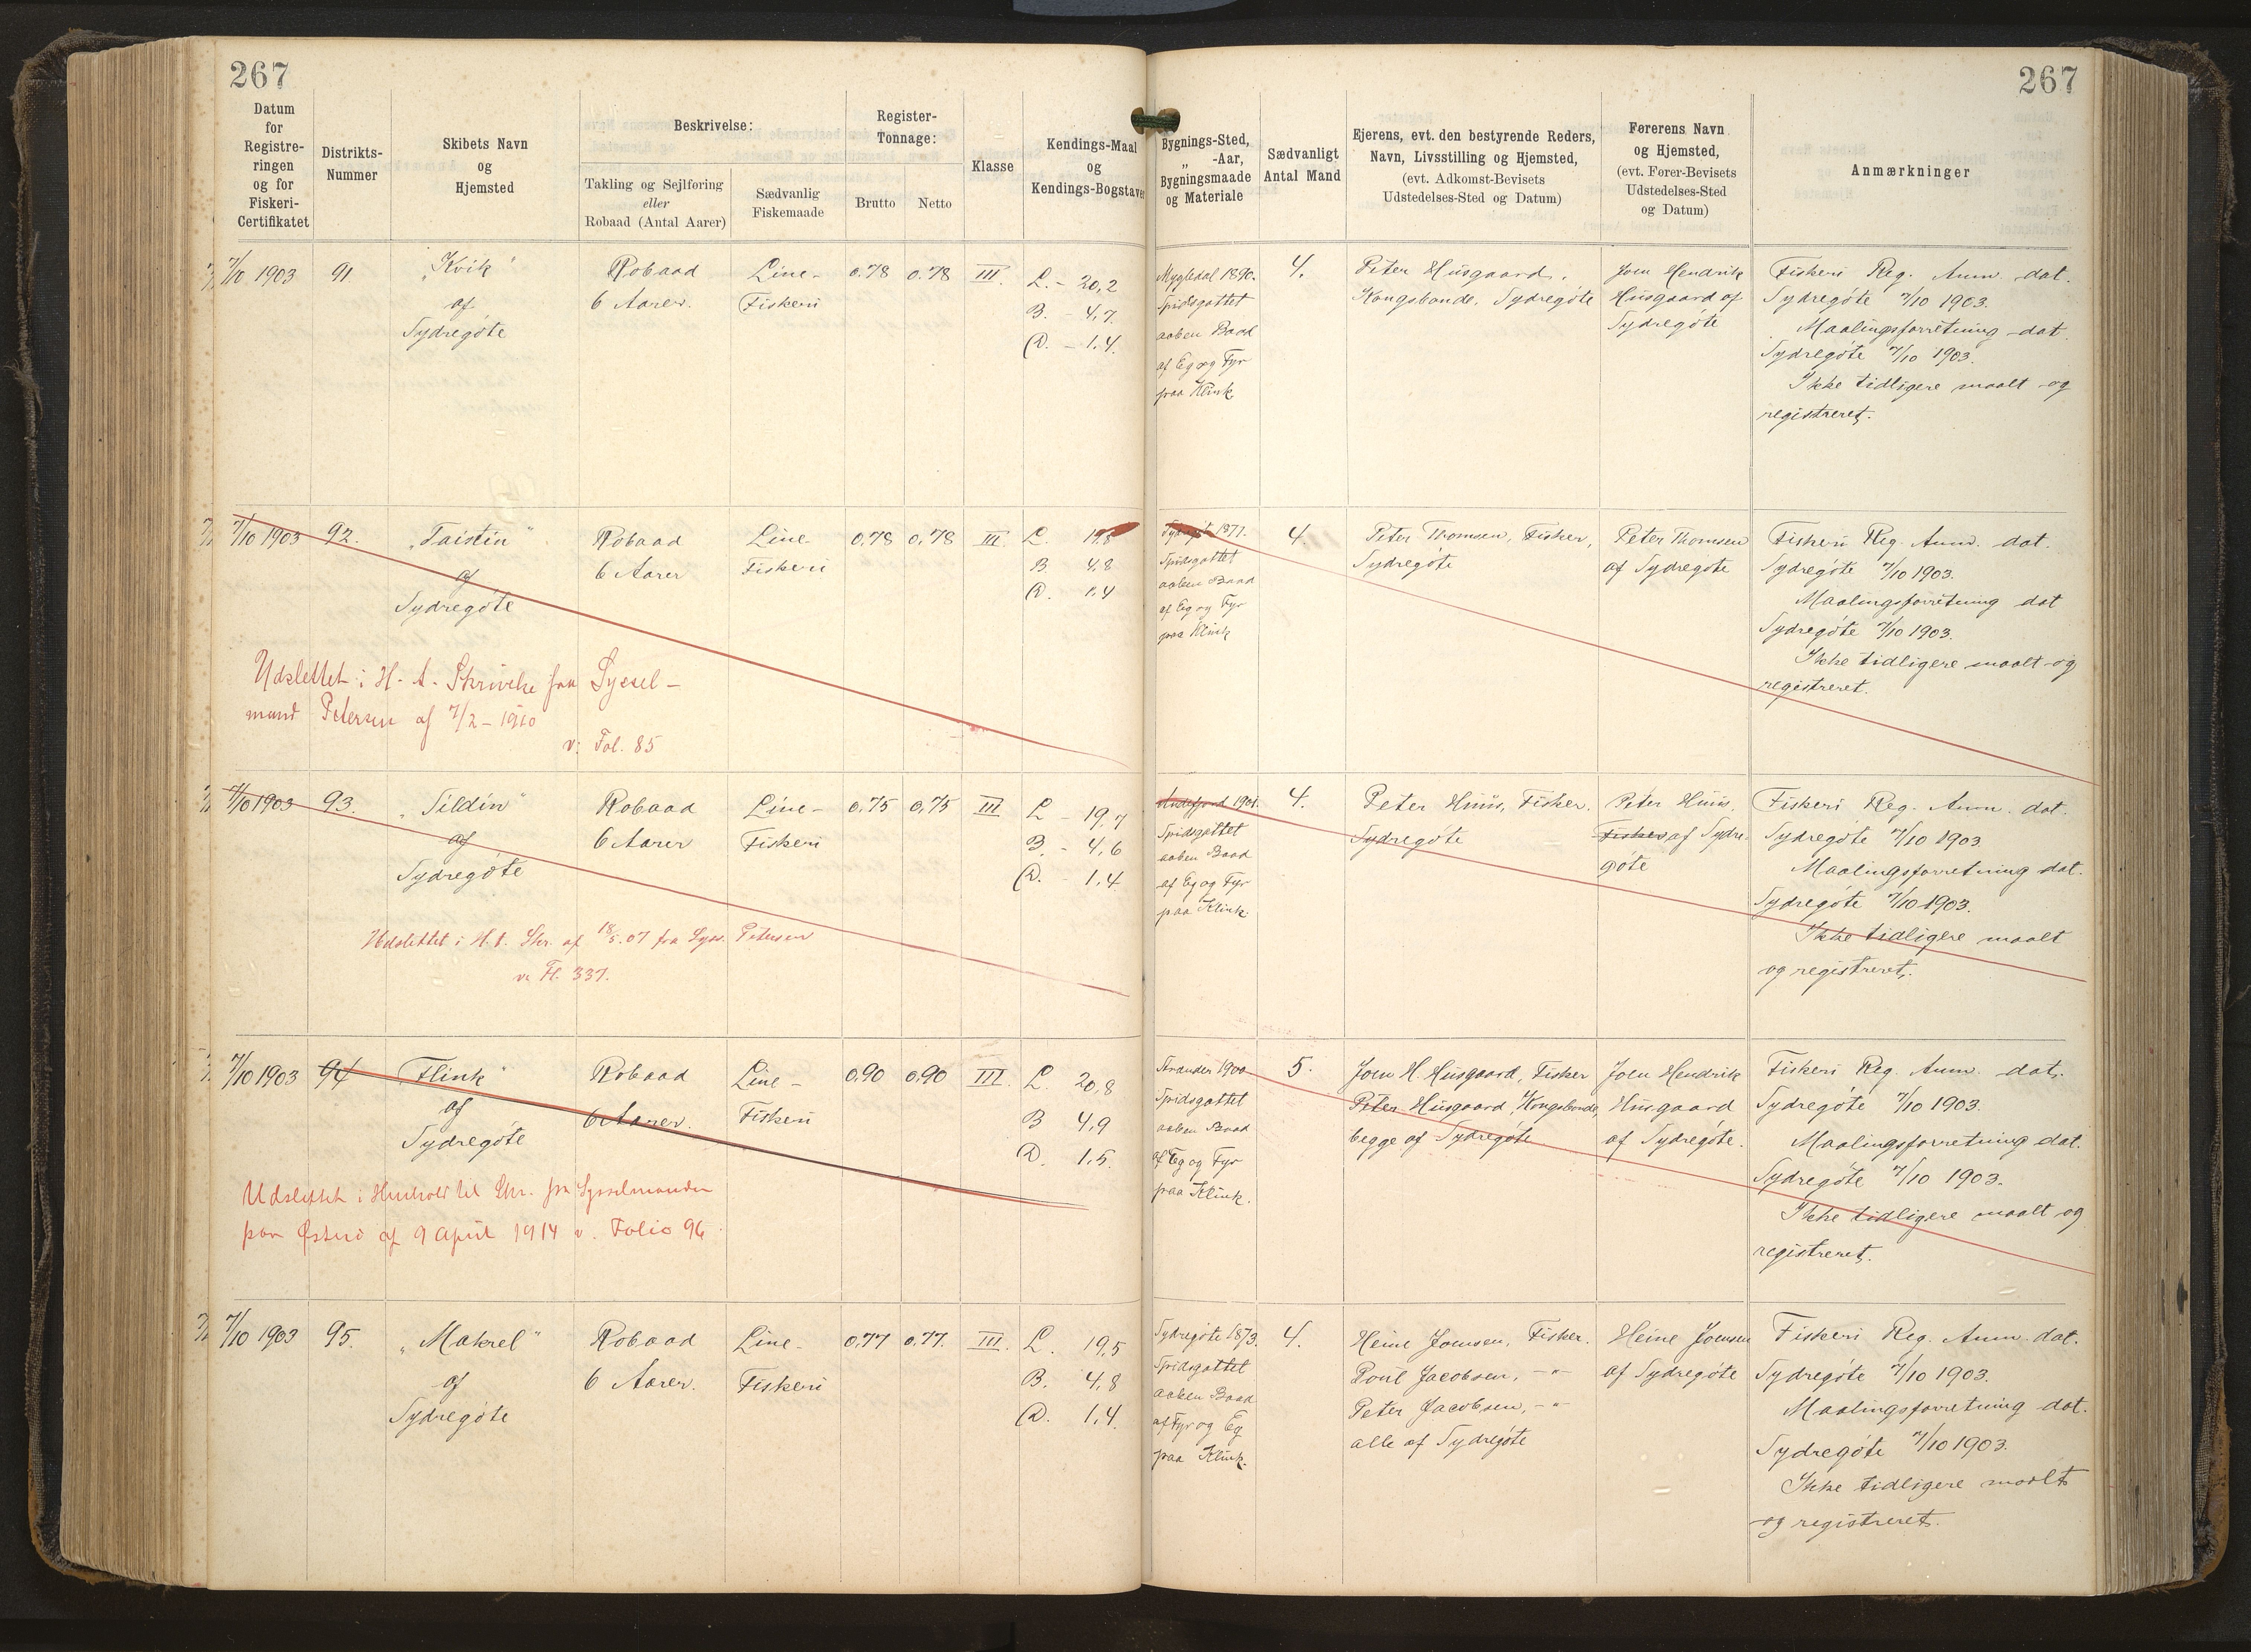 267
267
Datum
for
Registre-
ringen
og for
Fiskeri-
Certifikatet
Distrikts-
Nummer
Skibets Navn
og
Hjemsted
Beskrivelse:
Takling og Sejlføring
eller
Robaad (Antal Aarer)
Sædvanlig
Fiskemaade
Register-
Tonnage:
Brutto
Netto
Klasse
Kendings-Maal
og
Kendings-Bogstaver
Bygnings-Sted,
„ -Aar,
Bygningsmaade
og Materiale
Sædvanligt
Antal Mand
Ejerens, evt. den bestyrende Reders,
Navn, Livsstilling og Hjemsted,
(evt. Adkomst-Bevisets
Udstedelses-Sted og Datum)
Førerens Navn
og Hjemsted,
(evt. Fører-Bevisets
Udstedelses-Sted
og Datum)
Anmærkninger
7/10 1903
91.
„Kvik“
af
Sydregøte
Robaad
6 Aarer.
Line-
Fiskeri
0.78
0.78
III.
L. - 20,2
B. - 4,7.
D. - 1.4.
Mygledal 1890.
Spidsgattet
aaben Baad
af Eg og Fyr
paa Klink
4.
Peter Husgaard,
Kongsbonde, Sydregøte
Joen Hendrik
Husgaard af
Sydregøte
Fiskeri Reg. Anm. dat.
Sydregøte 7/10 1903.
Maalingsforretning dat.
Sydregøte 7/10 1903.
Ikke tidligere maalt og
registreret.
7/10 1903
92.
„Taistin“
af
Sydregøte
Robaad
6 Aarer
Line
Fiskeri
0,78
0,78
III.
L. 19,8
B. 4,8
D. 1,4
1877.
Spidsgattet
aaben Baad
af Eg og Fyr
paa Klink
4.
Peter Thomsen, Fisker,
Sydregøte
Peter Thomsen
af Sydregøte
Fiskeri Reg. Anm. dat.
Sydregøte 7/10 1903.
Maalingsforretning dat
Sydregøte 7/10 1903.
Ikke tidligere maalt og
registreret.
Udslettet i H. t. Skrivelse fra Syssel-
mand Petersen af 7/2 - 1910
v: Fol. 85
7/10 1903
93.
„Sildin“
af
Sydregøte
Robaad
6 Aarer
Line-
Fiskeri
0,75
0,75
III
L - 19,7
B. - 4,6
D. - 1,4
Andefjord 1901.
Spidsgattet
aaben Baad
af Eg og Fyr
paa Klink.
4.
Peter Huus, Fisker.
Sydregøte
Peter Huus,
Fisker af Sydre-
gøte
Fiskeri Reg. Anm. dat.
Sydregøte 7/10 1903
Maalingsforretning dat.
Sydregøte 7/10 1903.
Ikke tidligere maalt
og registreret.
Udslettet i H. t. Skr. af 18/5. 07 fra Syss. Petersen
v. Fl. 337.
7/10 1903
94
„Flink“
af
Sydregøte
Robaad
6 Aarer.
Line-
Fiskeri
0,90
0,90
III.
L. 20,8
B 4,9
D. 1,5.
Strander 1900
Spidsgattet
aaben Baad
af Eg og Fyr
paa Klink.
5.
Joen H. Husgaard, Fisker
Peter Husgaard, Kongsbonde,
begge af Sydregøte
Joen Hendrik
Husgaard
af Sydregøte.
Fiskeri Reg. Anm. dat.
Sydregøte 7/10 1903.
Maalingsforretning dat.
Sydregøte 7/10 1903.
Ikke tidligere maalt og
registreret.
Udslettet i Henhold til Skr. fra Sysselmanden
paa Østerø af 9 April 1914 v. Folio 96
7/10 1903
95.
„Makrel“
af
Sydregøte
Robaad
6 Aarer.
Line-
Fiskeri
0,77
0,77.
III.
L. 19,5
B. 4,8
D. 1,4.
Sydregøte 1873.
Spidsgattet
aaben Baad
af Fyr og Eg
paa Klink.
4.
Heine Joensen, Fisker.
Poul Jacobsen, -"-
Peter Jacobsen, -"-
alle af Sydregøte
Heine Joensen
af Sydregøte
Fiskeri Reg. Anm. dat.
Sydregøte 7/10 1903.
Maalingsforretning dat.
Sydregøte 7/10 1903.
Ikke tidligere maalt
og registreret.